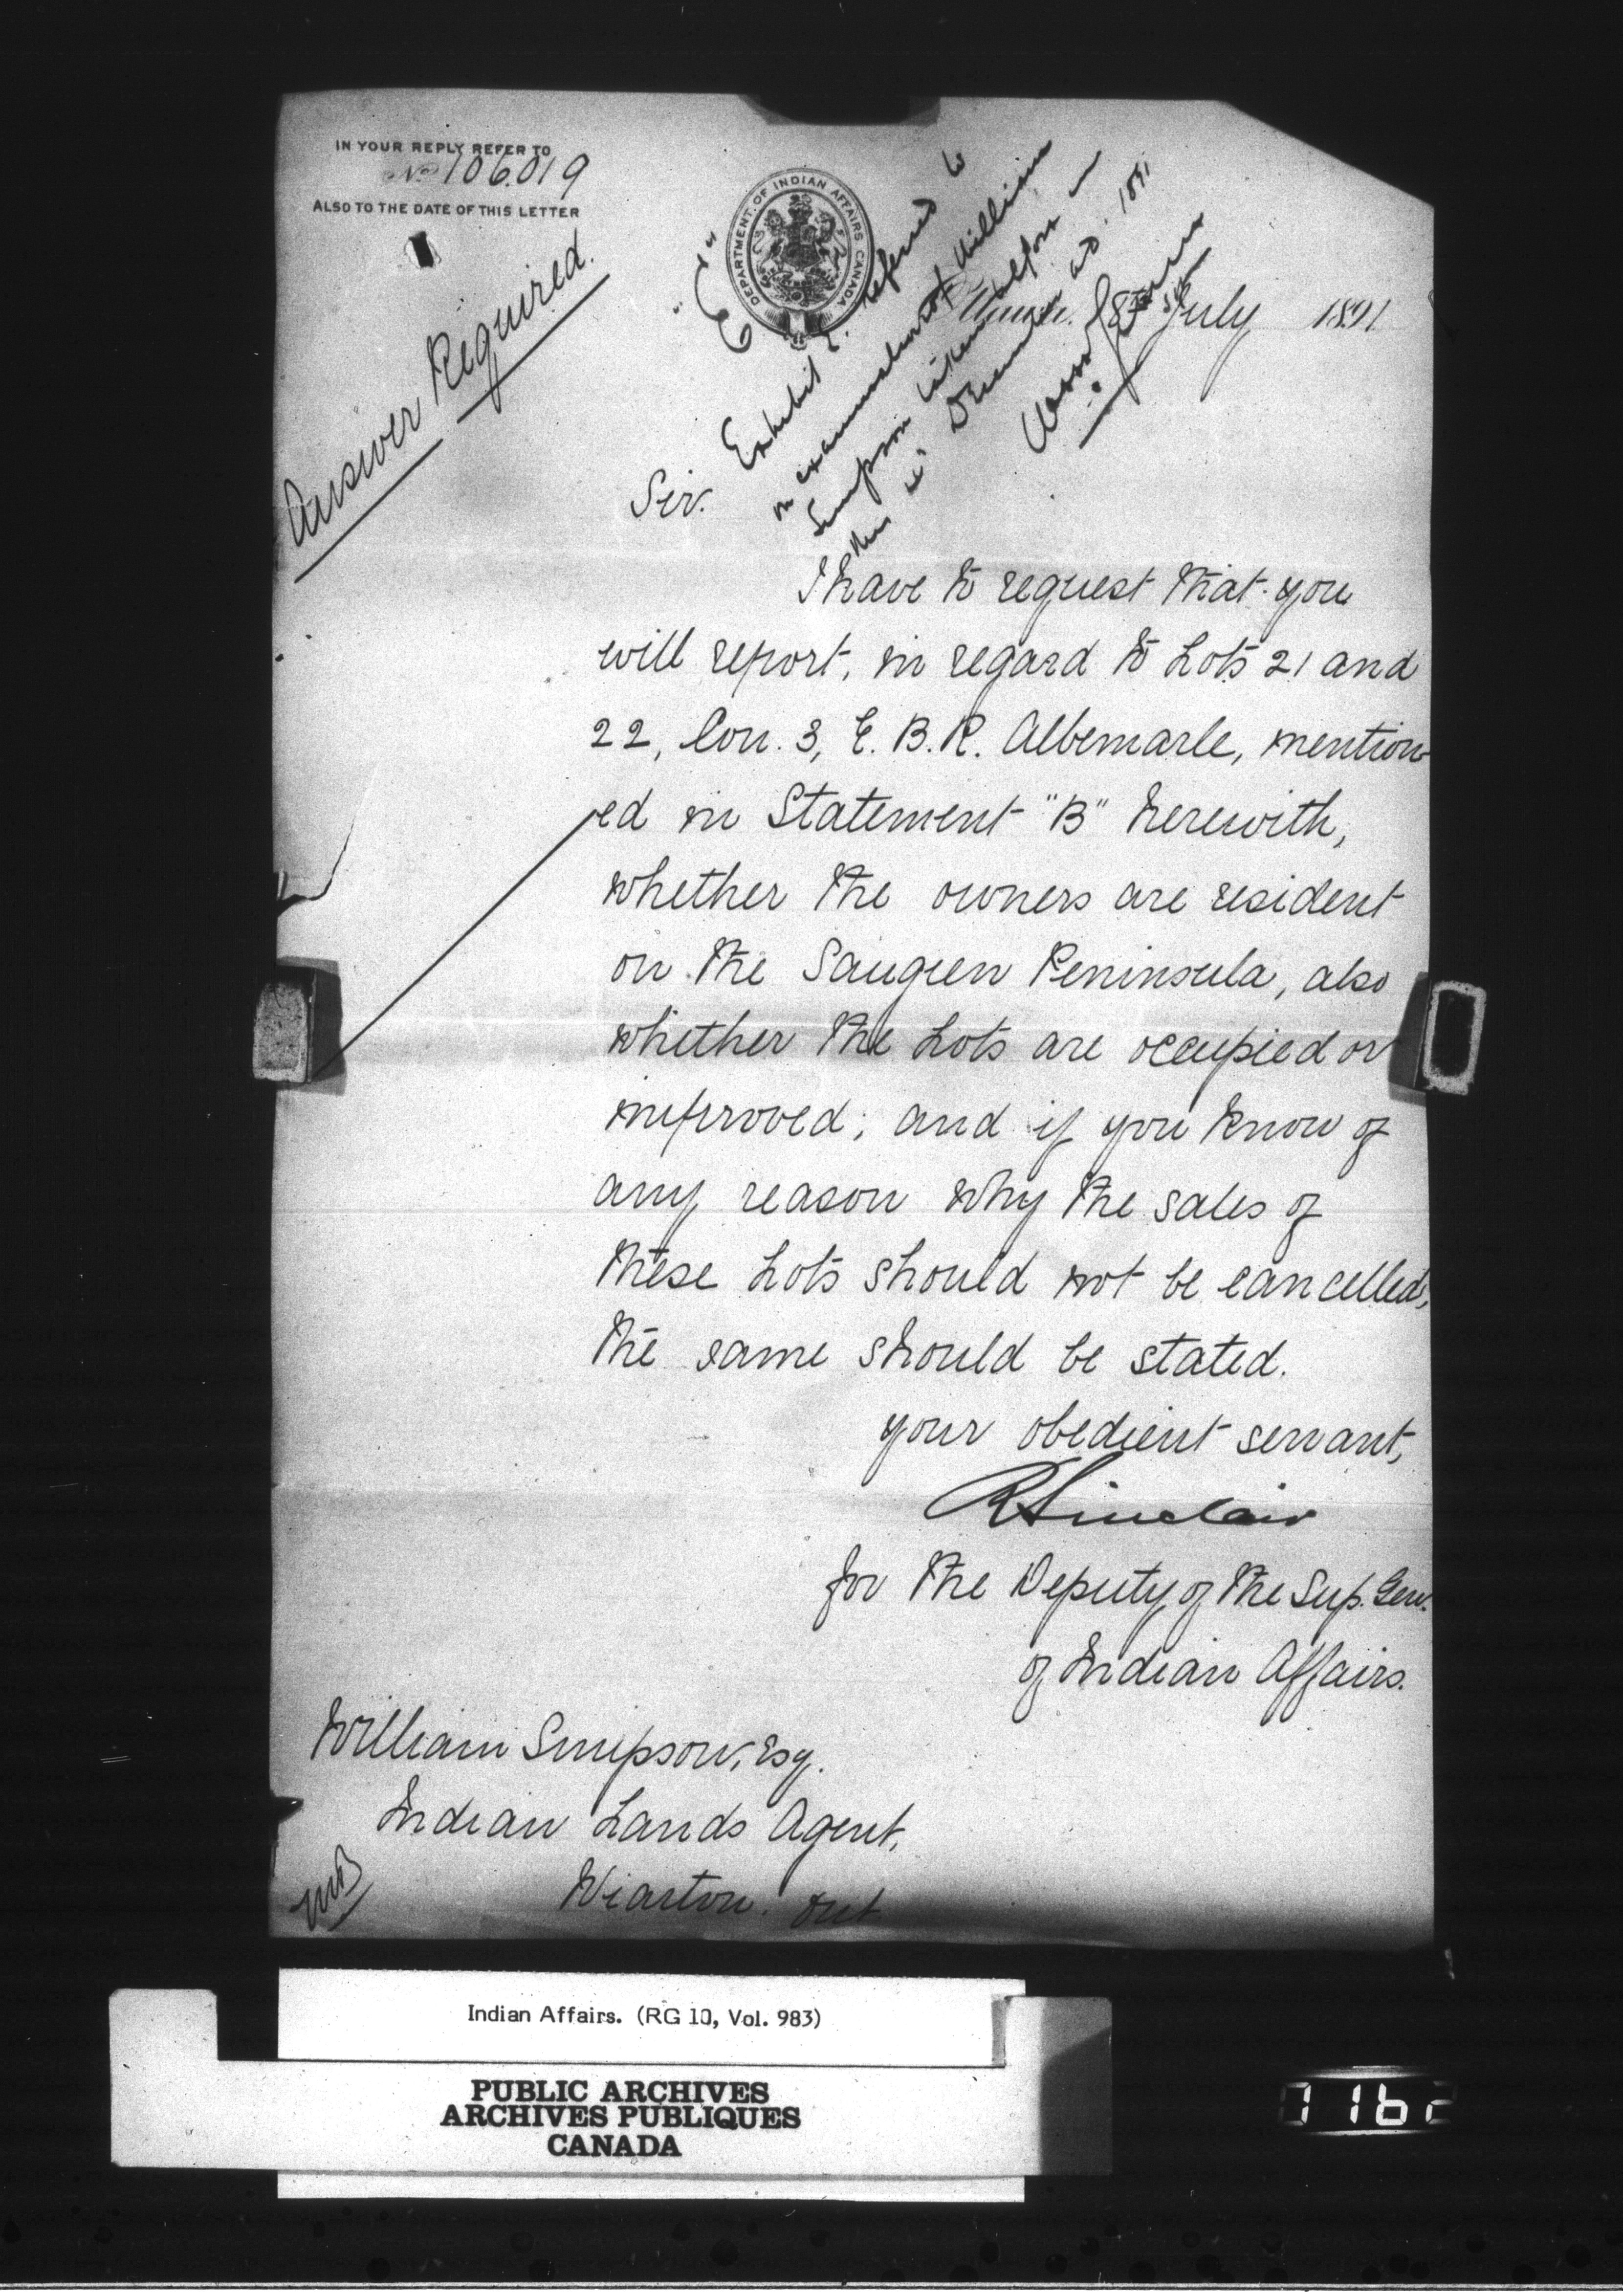 IN YOUR REPLY REFER TO
No 106.019
ALSO TO THE DATE OF THIS LETTER
Answer Required.
DEPARTMENT OF INDIAN AFFAIRS CANADA
"E"
Exhibit E. referred to
on examination of William
Simpson taken before me
this December AD. 1891
July 1891
Sir.
I have to request that you
will report, in regard to Lots 21 and
22, Con. 3, E. B. R. Albemarle, mention-
ed in Statement "B" herewith,
whether the owners are resident
on the Saugeen Peninsula, also
whether the Lots are occupied or
improved; and if you know of
any reason why the sales of
these Lots should not be cancelled,
the same should be stated.
your obedient servant,
R Sinclair
for the Deputy of the Sup. Gen.
of Indian Affairs.
William Simpson, Esq.
Indian Lands Agent,
Wiarton. Ont
Indian Affairs. (RG 10, Vol. 983)
PUBLIC ARCHIVES
ARCHIVES PUBLIQUES
CANADA